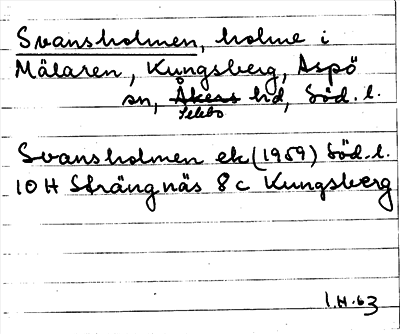 Svansholmen, holme i
Mälaren, Kungsberg, Aspö
sn, Åkers hd, Söd. l.
Selebo
Svansholmen ek (1959) Söd. l.
10 H Strängnäs 8 c Kungsberg
I.H. 63